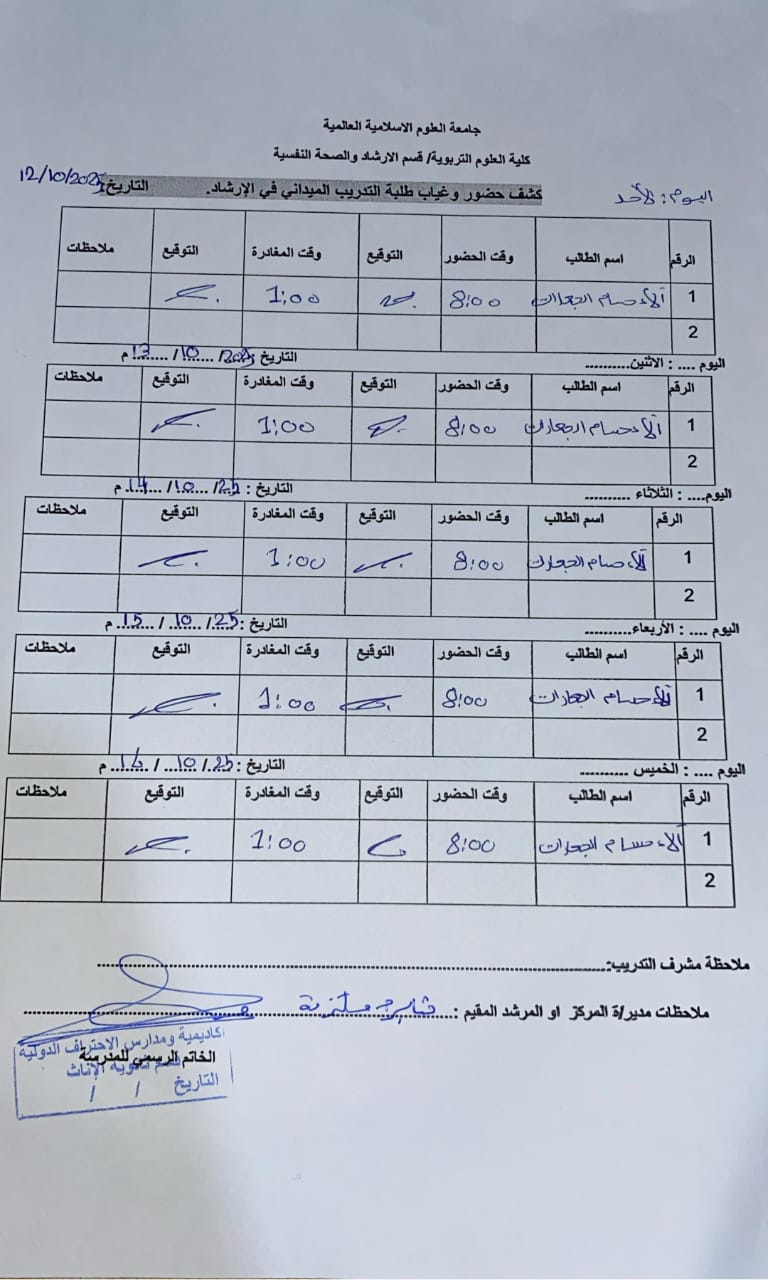 جامعة العلوم الاسلامية العالمية
كلية العلوم التربوية/ قسم الارشاد والصحة النفسية
اليوم: الأحد كشف حضور وغياب طلبة التدريب الميداني في الإرشاد. التاريخ: 12/10/2025
الرقم اسم الطالب وقت الحضور التوقيع وقت المغادرة التوقيع ملاحظات
1 آلاء حسام الجعارات 8:00 1:00
2
اليوم .... : الاثنين........... التاريخ 2025/ 10 / 13 م
الرقم اسم الطالب وقت الحضور التوقيع وقت المغادرة التوقيع ملاحظات
1 آلاء حسام الجعارات 8:00 1:00
2
اليوم.... : الثلاثاء .......... التاريخ : 25/ 10 / 14 م
الرقم اسم الطالب وقت الحضور التوقيع وقت المغادرة التوقيع ملاحظات
1 آلاء حسام الجعارات 8:00 1:00
2
اليوم .... : الأربعاء........... التاريخ : 25/ 10 / 15 م
الرقم اسم الطالب وقت الحضور التوقيع وقت المغادرة التوقيع ملاحظات
1 آلاء حسام الجعارات 8:00 1:00
2
اليوم .... : الخميس ........... التاريخ : 25/ 10 / 16 م
الرقم اسم الطالب وقت الحضور التوقيع وقت المغادرة التوقيع ملاحظات
1 آلاء حسام الجعارات 8:00 1:00
2
ملاحظة مشرف التدريب:
ملاحظات مدير/ة المركز او المرشد المقيم : ملتزمة
اكاديمية ومدارس الاحتراف الدولية
الخاتم الرسمي للمدرسة
ثانوية الإناث
التاريخ / /